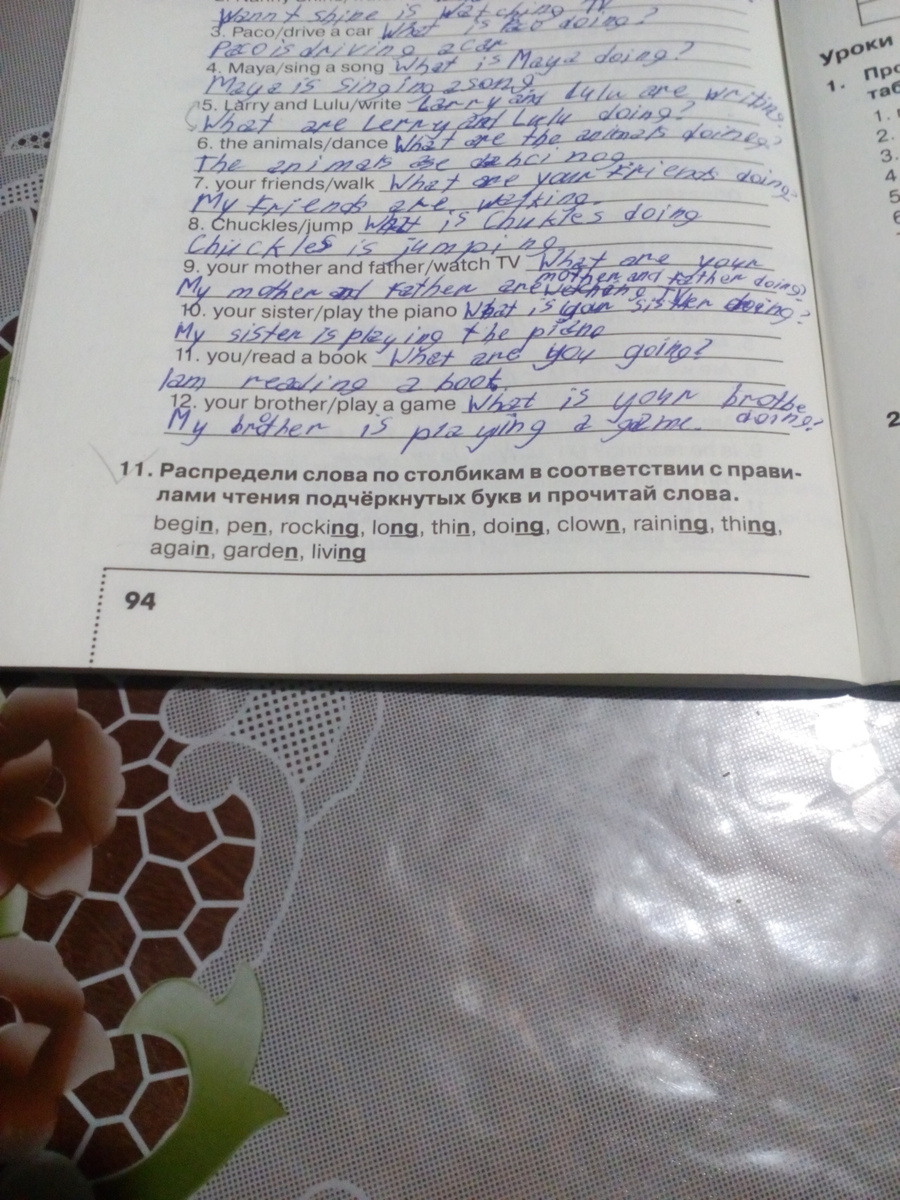 is watching TV
3. Paco/drive a car What is Paco doing?
Paco is driving a car
4. Maya/sing a song What is Maya doing?
Maya is singing a song
5. Larry and Lulu/write Larry and Lulu are writing.
What are Lerry and Lulu doing?
6. the animals/dance What are the animals doineg?
The animals are
7. your friends/walk What are your friends doing?
My friends are walking.
8. Chuckles/jump What is Chukles doing
Chuckles is jumping
9. your mother and father/watch TV What are your
mother and father doing?
My mother and father are
10. your sister/play the piano What is your sister doing?
My sister is playing the piano
11. you/read a book What are you going?
I am reading a book.
12. your brother/play a game What is your brothe
doing?
My brother is playing a game.
11. Распредели слова по столбикам в соответствии с прави-
лами чтения подчёркнутых букв и прочитай слова.
begin, pen, rocking, long, thin, doing, clown, raining, thing,
again, garden, living
94
Уроки
1. Про
таб
1.
2.
3.
4
5
6
2